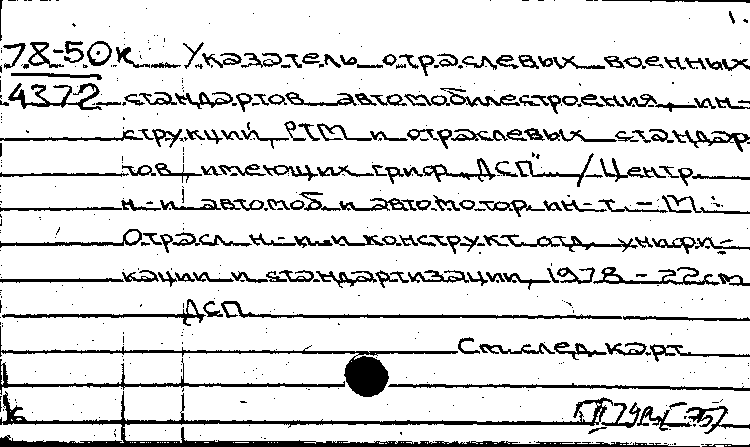 1.
78-50к Указатель отраслевых военных
4372 стандартов автомобилестроения, ин-
струкций, РТМ и отраслевых стандар
тов, имеющих гриф „ДСП" / Центр.
н.-и. автомоб. и автомотор. ин-т. – М.:
Отрасл. н.-и. и конструкт. отд. унифи-
кации и стандартизации, 1978 – 22см
ДСП.
См. след. карт.
б